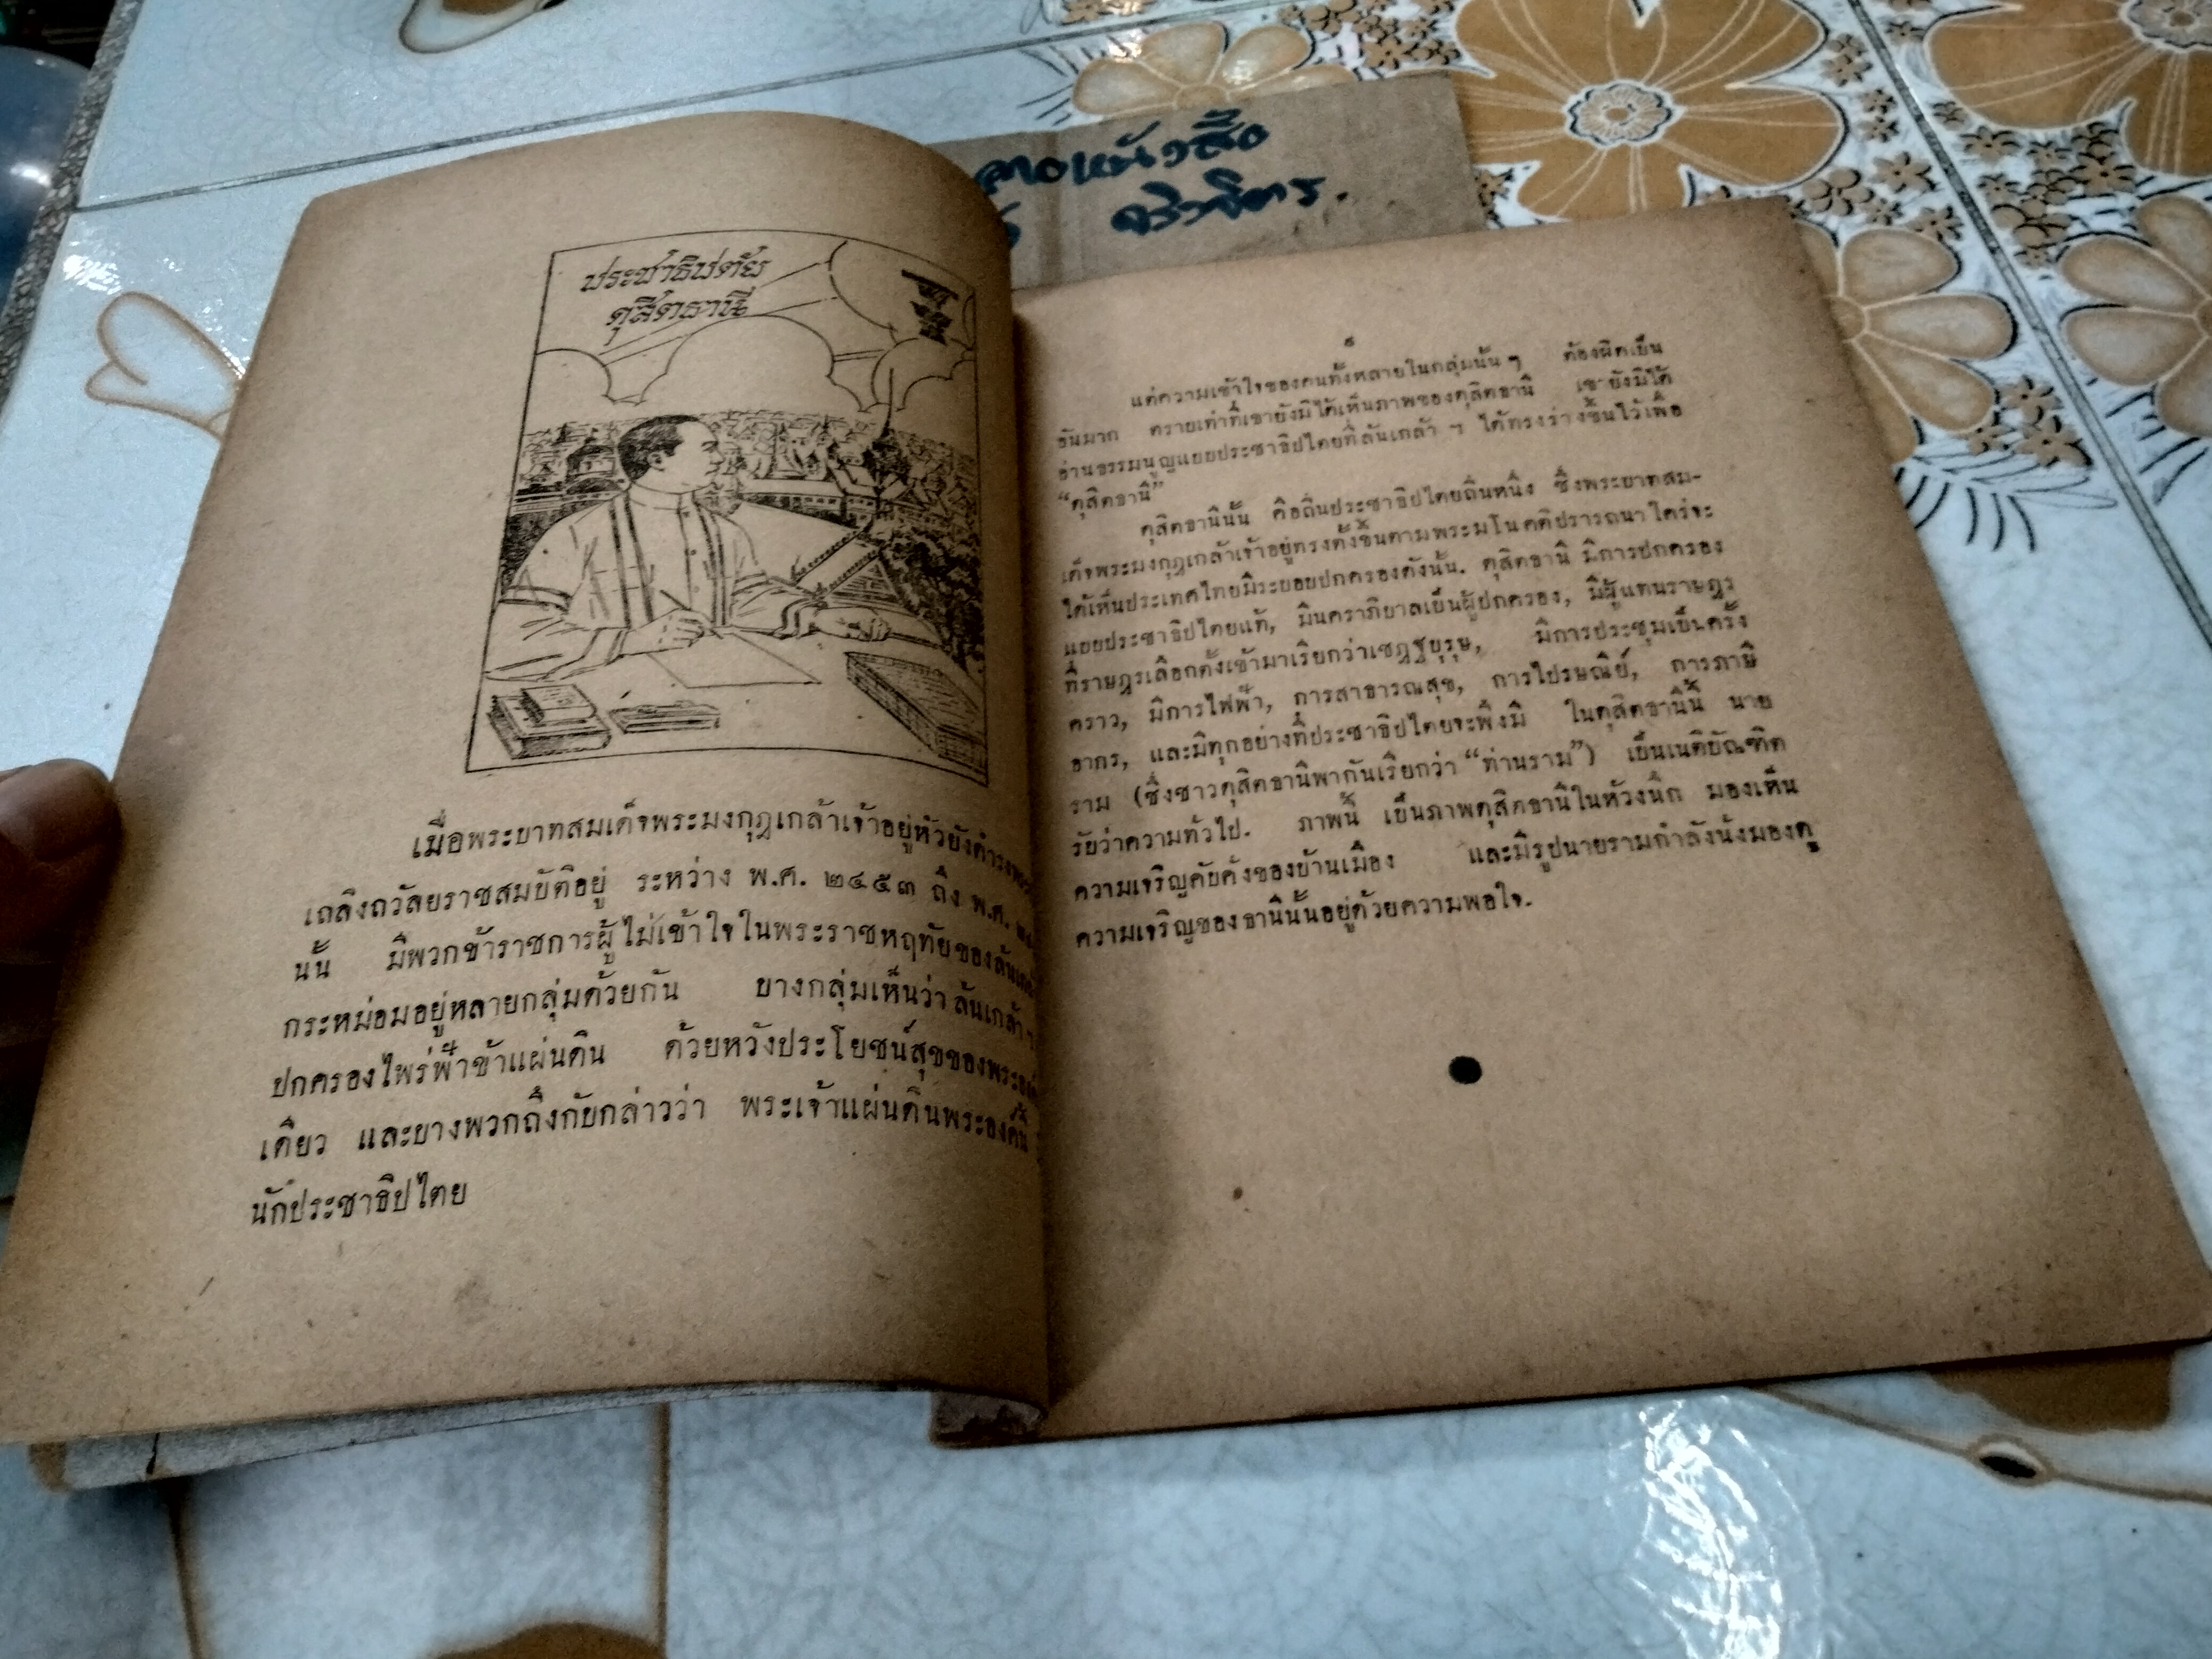 ประชาธิปตัย
ดุสิตธานี
เมื่อพระบาทสมเด็จพระมงกุฎเกล้าเจ้าอยู่หัวยังดำรง
เถลิงถวัลยราชสมบัติอยู่ ระหว่าง พ.ศ. ๒๔๕๓ ถึง พ.ศ.
นั้น มีพวกข้าราชการผู้ไม่เข้าใจในพระราชหฤทัยของล้นเกล้า
กระหม่อมอยู่หลายกลุ่มด้วยกัน บางกลุ่มเห็นว่าล้นเกล้า ฯ
ปกครองไพร่ฟ้าข้าแผ่นดิน ด้วยหวังประโยชน์สุขของพระองค์
เดียว และบางพวกถึงกับกล่าวว่า พระเจ้าแผ่นดินพระองค์นี้
นักประชาธิปไตย
หนังสือ
จริวจิตร.
๓
แต่ความเข้าใจของคนทั้งหลายในกลุ่มนั้น ๆ ต้องผิดเป็น
อันมาก ตราบเท่าที่เขายังมิได้เห็นภาพของดุสิตธานี เขายังมิได้
อ่านธรรมนูญแบบประชาธิปไตยที่ล้นเกล้า ฯ ได้ทรงร่างขึ้นไว้เพื่อ
“ดุสิตธานี”
ดุสิตธานีนั้น คือถิ่นประชาธิปไตยถิ่นหนึ่ง ซึ่งพระบาทสม-
เด็จพระมงกุฎเกล้าเจ้าอยู่ทรงตั้งขึ้นตามพระมโนคติปรารถนาใคร่จะ
ได้เห็นประเทศไทยมีระบอบปกครองดังนั้น. ดุสิตธานี มีการปกครอง
แบบประชาธิปไตยแท้, มีนคราภิบาลเป็นผู้ปกครอง, มีผู้แทนราษฎร
ที่ราษฎรเลือกตั้งเข้ามาเรียกว่าเชฎฐบุรุษ, มีการประชุมเป็นครั้ง
คราว, มีการไฟฟ้า, การสาธารณสุข, การไปรษณีย์, การภาษี
อากร, และมีทุกอย่างที่ประชาธิปไตยจะพึงมี ในดุสิตธานีนี้ นาย
ราม (ซึ่งชาวดุสิตธานีพากันเรียกว่า “ท่านราม”) เป็นเนติบัณฑิต
รับว่าความทั่วไป. ภาพนี้ เป็นภาพดุสิตธานีในห้วงนึก มองเห็น
ความเจริญคับคั่งของบ้านเมือง และมีรูปนายรามกำลังนั่งมองดู
ความเจริญของธานีนั้นอยู่ด้วยความพอใจ.